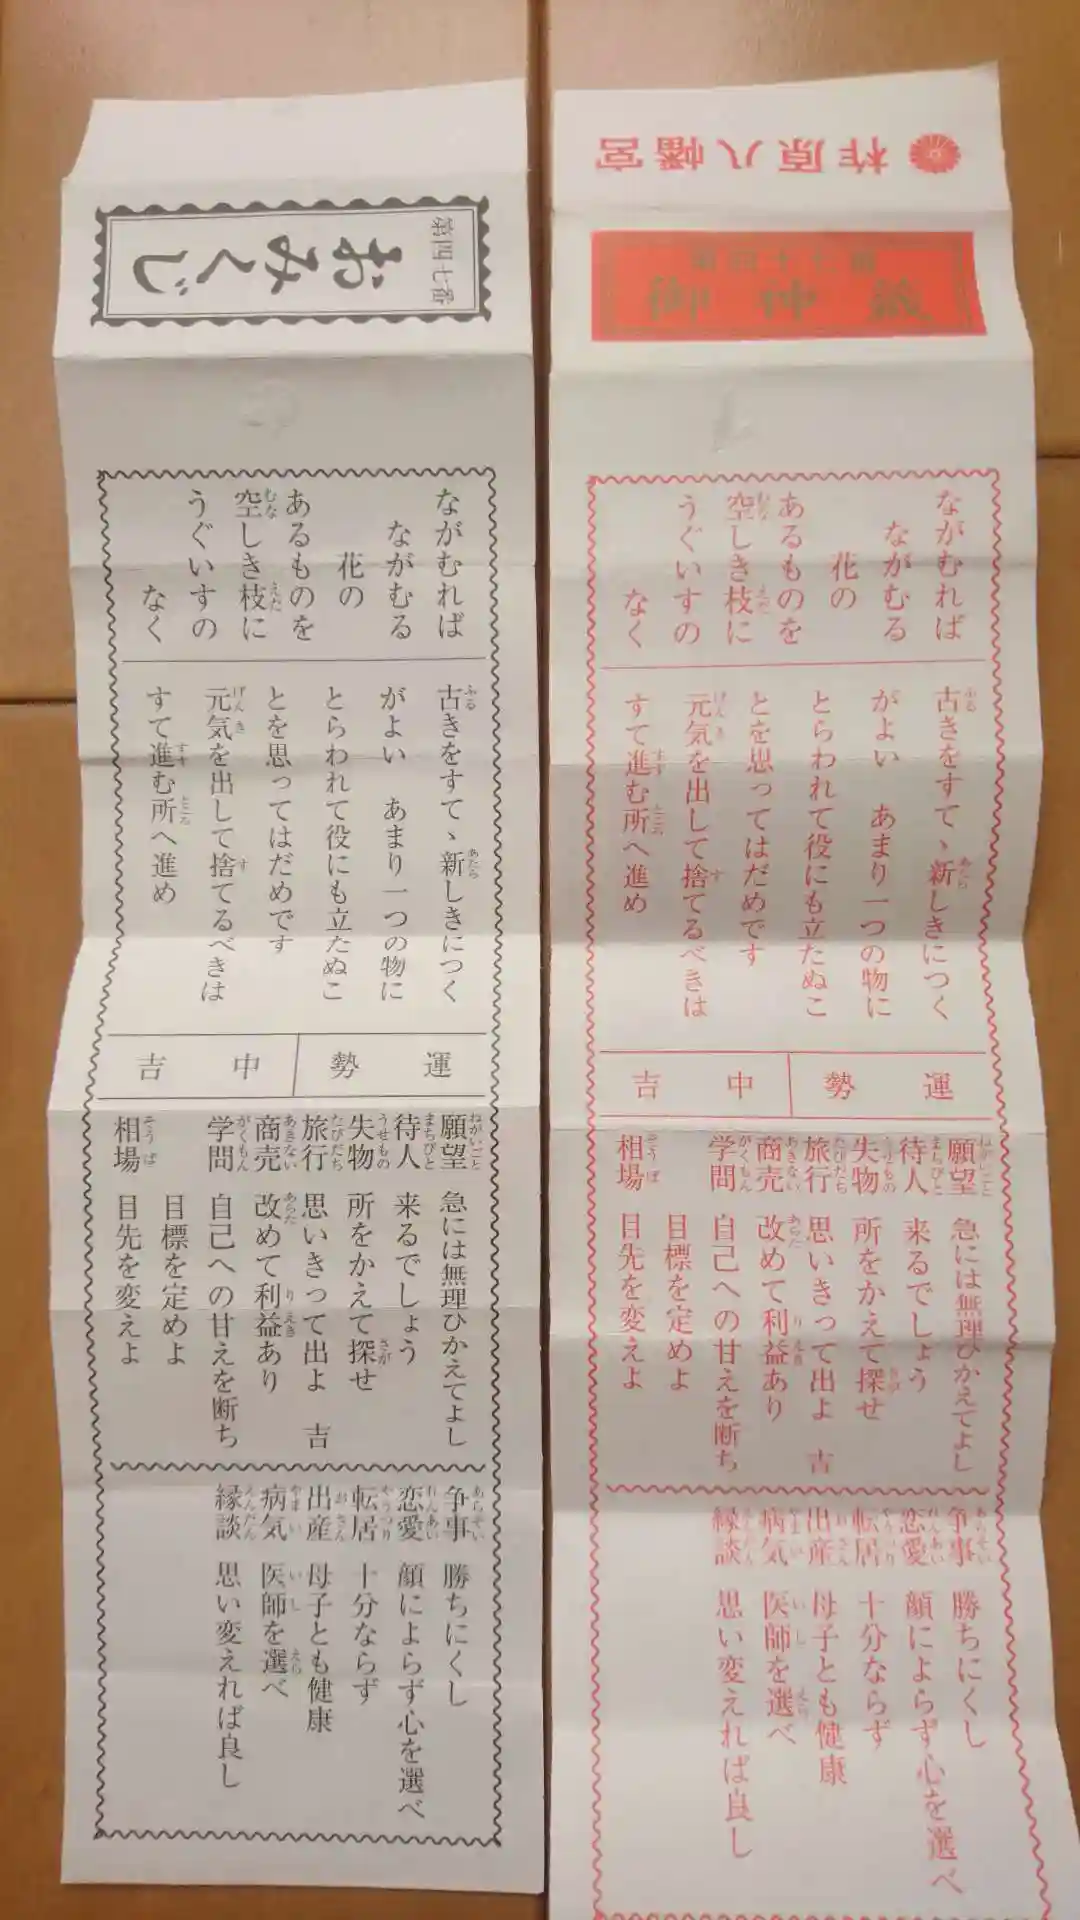 柞原八幡宮
第四十七番
御神籤
ながむれば
ながむる
花の
あるものを
空しき枝に
うぐいすの
なく
古きをすてゝ新しきにつく
がよい あまり一つの物に
とらわれて役にも立たぬこ
とを思ってはだめです
元気を出して捨てるべきは
すて進む所へ進め
運勢 中吉
願望 急には無理ひかえてよし
待人 来るでしょう
失物 所をかえて探せ
旅行 思いきって出よ 吉
商売 改めて利益あり
学問 自己への甘えを断ち
目標を定めよ
相場 目先を変えよ
争事 勝ちにくし
恋愛 顔によらず心を選べ
転居 十分ならず
出産 母子とも健康
病気 医師を選べ
縁談 思い変えれば良し
第四七番
おみくじ
ながむれば
ながむる
花の
あるものを
空しき枝に
うぐいすの
なく
古きをすてゝ新しきにつく
がよい あまり一つの物に
とらわれて役にも立たぬこ
とを思ってはだめです
元気を出して捨てるべきは
すて進む所へ進め
運勢 中吉
願望 急には無理ひかえてよし
待人 来るでしょう
失物 所をかえて探せ
旅行 思いきって出よ 吉
商売 改めて利益あり
学問 自己への甘えを断ち
目標を定めよ
相場 目先を変えよ
争事 勝ちにくし
恋愛 顔によらず心を選べ
転居 十分ならず
出産 母子とも健康
病気 医師を選べ
縁談 思い変えれば良し